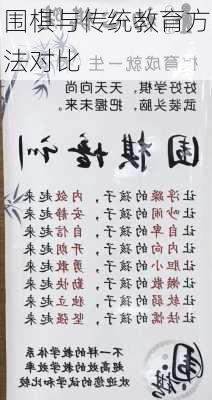 围棋与传统教育方
法对比
成就一生
好好学棋 天天向上
武装头脑 美好未来
围棋
让浮躁的孩子，内敛起来
让吵闹的孩子，安静起来
让自卑的孩子，自信起来
让内向的孩子，开朗起来
让胆小的孩子，勇敢起来
让懒散的孩子，勤快起来
让软弱的孩子，独立起来
让怯懦的孩子，坚强起来
不一样的教学体系
更高效的教学效率
欢迎您的试学和比较
围棋